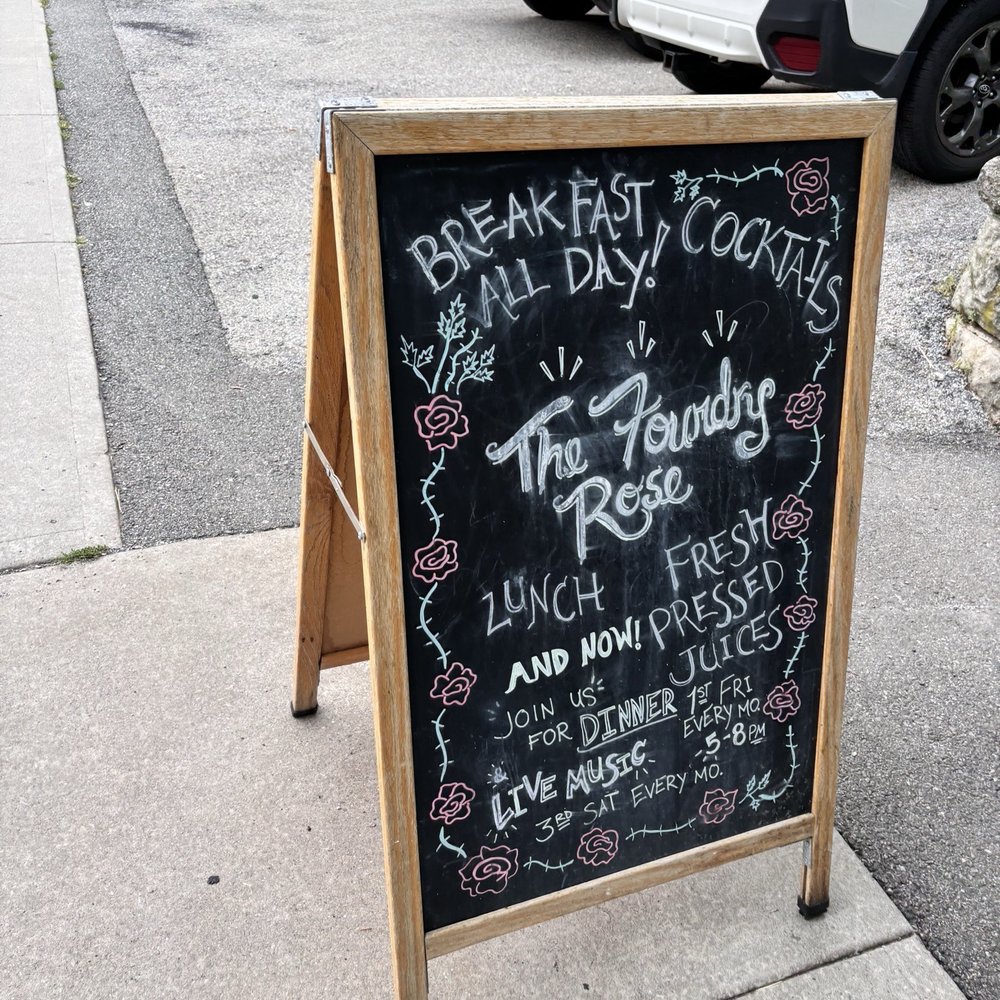 BREAKFAST
ALL DAY!
COCKTAILS
The Foundry
Rose
LUNCH
FRESH
PRESSED
JUICES
AND NOW!
JOIN US
FOR DINNER
1ST FRI
EVERY MO.
5-8PM
& LIVE MUSIC
3RD SAT EVERY MO.